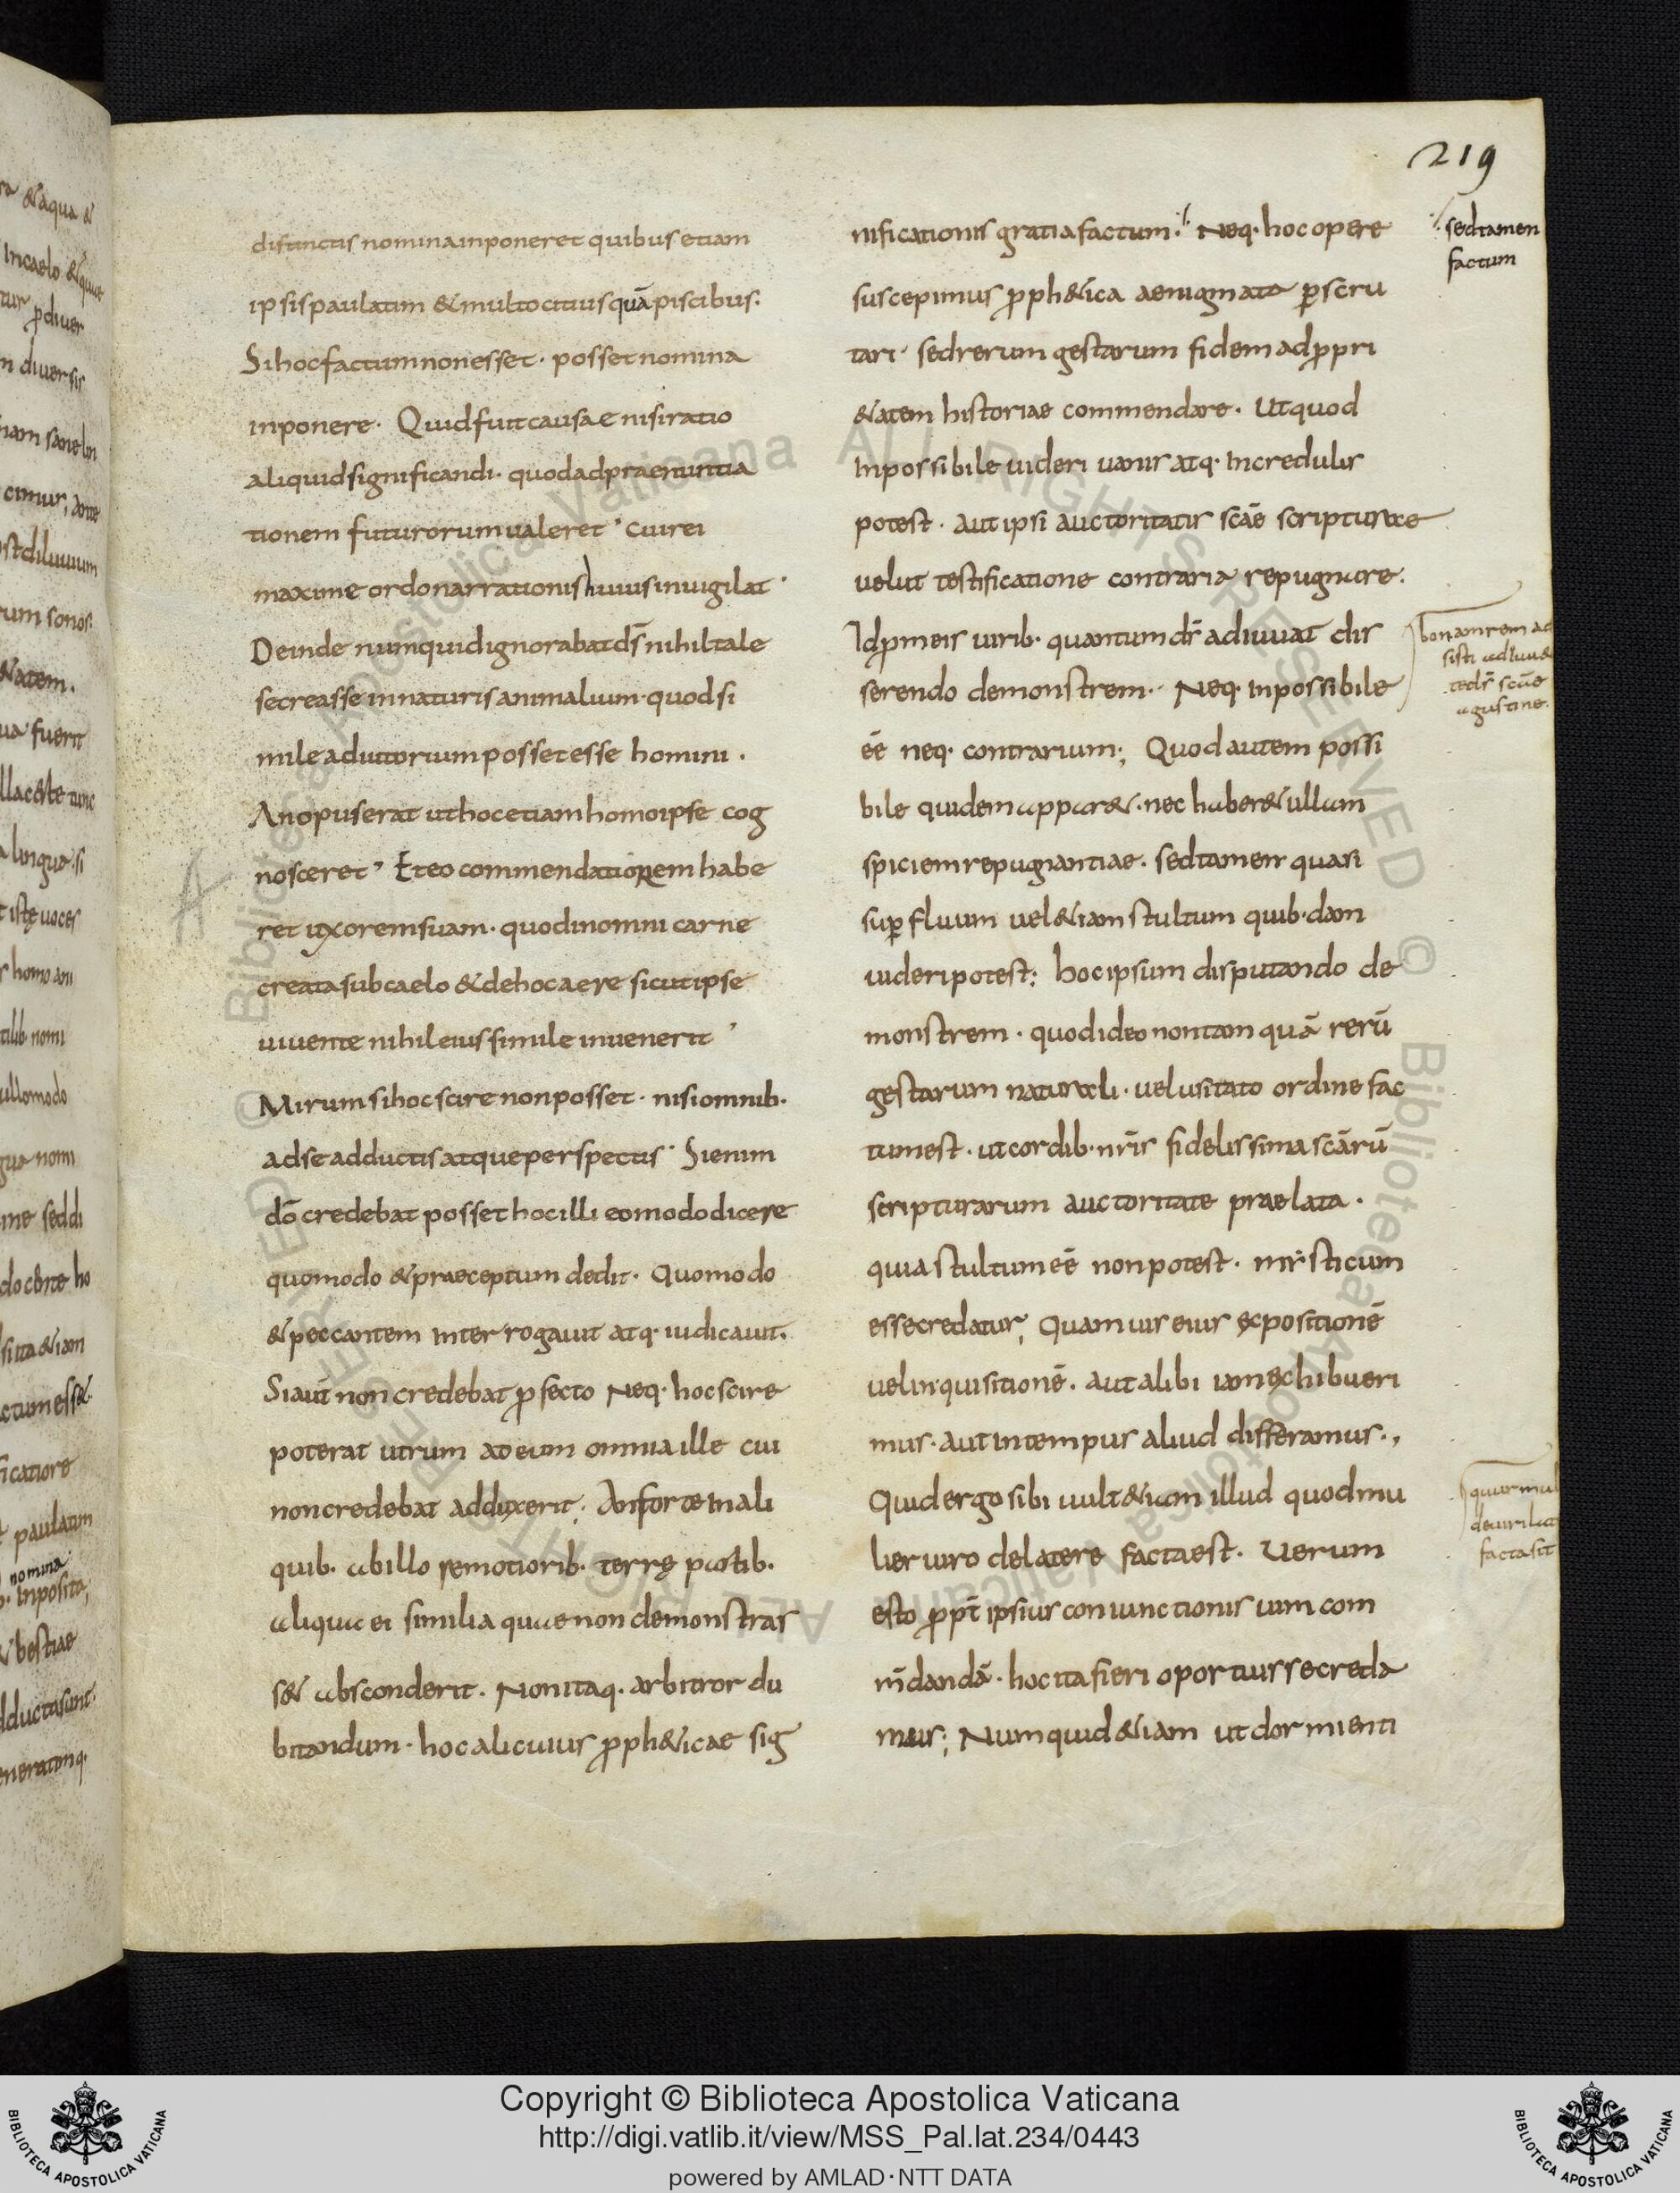 219
distinctis nomina inponeret quibus etiam
ipsis paulatim & multo citius quā piscibus.
Si hoc factum non esset · posset nomina
inponere · Quid fuit causae nisi ratio
aliquid significandi · quod ad praenuntia
tionem futurorum ualeret · Cui rei
maxime ordo narrationis huius inuigilat ·
Deinde numquid ignorabat ds̄ nihil tale
se creasse in naturis animalium · quod si
mile adiutorium posset esse homini ·
An opus erat ut hoc etiam homo ipse cog
nosceret · Et eo commendatiorem habe
ret uxorem suam · quod in omni carne
creata sub caelo & de hoc aere sicut ipse
uiuente nihil eius simile inuenerit ·
Mirum si hoc scire non posset · nisi omnib·
ad se adductis atque perspectis · Si enim
dō credebat posset hoc illi eo modo dicere
quomodo & praeceptum dedit · Quomodo
& peccantem interrogauit atq· iudicauit.
Si aut̄ non credebat ꝓfecto Neq· hoc scire
poterat utrum ad eum omnia ille cui
non credebat adduxerit; An forte in ali
quib· ab illo remotiorib· terrę partib·
aliqua ei similia quae non demonstras
s& absconderit · Non itaq· arbitror du
bitandum · hoc alicuius ꝓph&icae sig
nificationis gratia factum ·/· Neq· hoc opere
suscepimus ꝓph&ica aenigmata ꝑscru
tari · sed rerum gestarum fidem ad ꝓpri
&atem historiae commendare · Ut quod
inpossibile uideri uanis atq· incredulis
potest · aut ipsi auctoritatis scāe scripturae
uelut testificatione contraria repugnare.
Id ꝓ meis uirib· quantum dr̄ adiuuat dis
serendo demonstrem · Neq· inpossibile
ēē neq· contrarium; Quod autem possi
bile quidem appar& · nec haber& ullam
spiciem repugnantiae · sed tamen quasi
suꝑfluum uel &iam stultum quib·dam
uideri potest; hoc ipsum disputando de
monstrem · quod ideo non tam quā rerū
gestarum naturali · uel usitato ordine fac
tum est · ut cordib· nr̄is fidelissima scārū
scripturarum auctoritate praelata ·
quia stultum ēē non potest · mysticum
esse credatur; Quamuis eius expositionē
uel inquisitionē · aut alibi iam exhibueri
mus · aut in tempus aliud differamus ·,
Quid ergo sibi uult &iam illud quod mu
lier uiro de latere facta est · Uerum
esto ꝓpt̄ ipsius coniunctionis uim com
m̄dandā · hoc ita fieri oportuisse creda
mus; Numquid &iam ut dormienti
·/· sed tamen
factum
bonam rem ad
sisti adiuu&
te dr̄ scāe
agustine.
quur mul
de uiri lat
facta sit
Copyright © Biblioteca Apostolica Vaticana
http://digi.vatlib.it/view/MSS_Pal.lat.234/0443
powered by AMLAD·NTT DATA
BIBLIOTECA APOSTOLICA VATICANA
BIBLIOTECA APOSTOLICA VATICANA